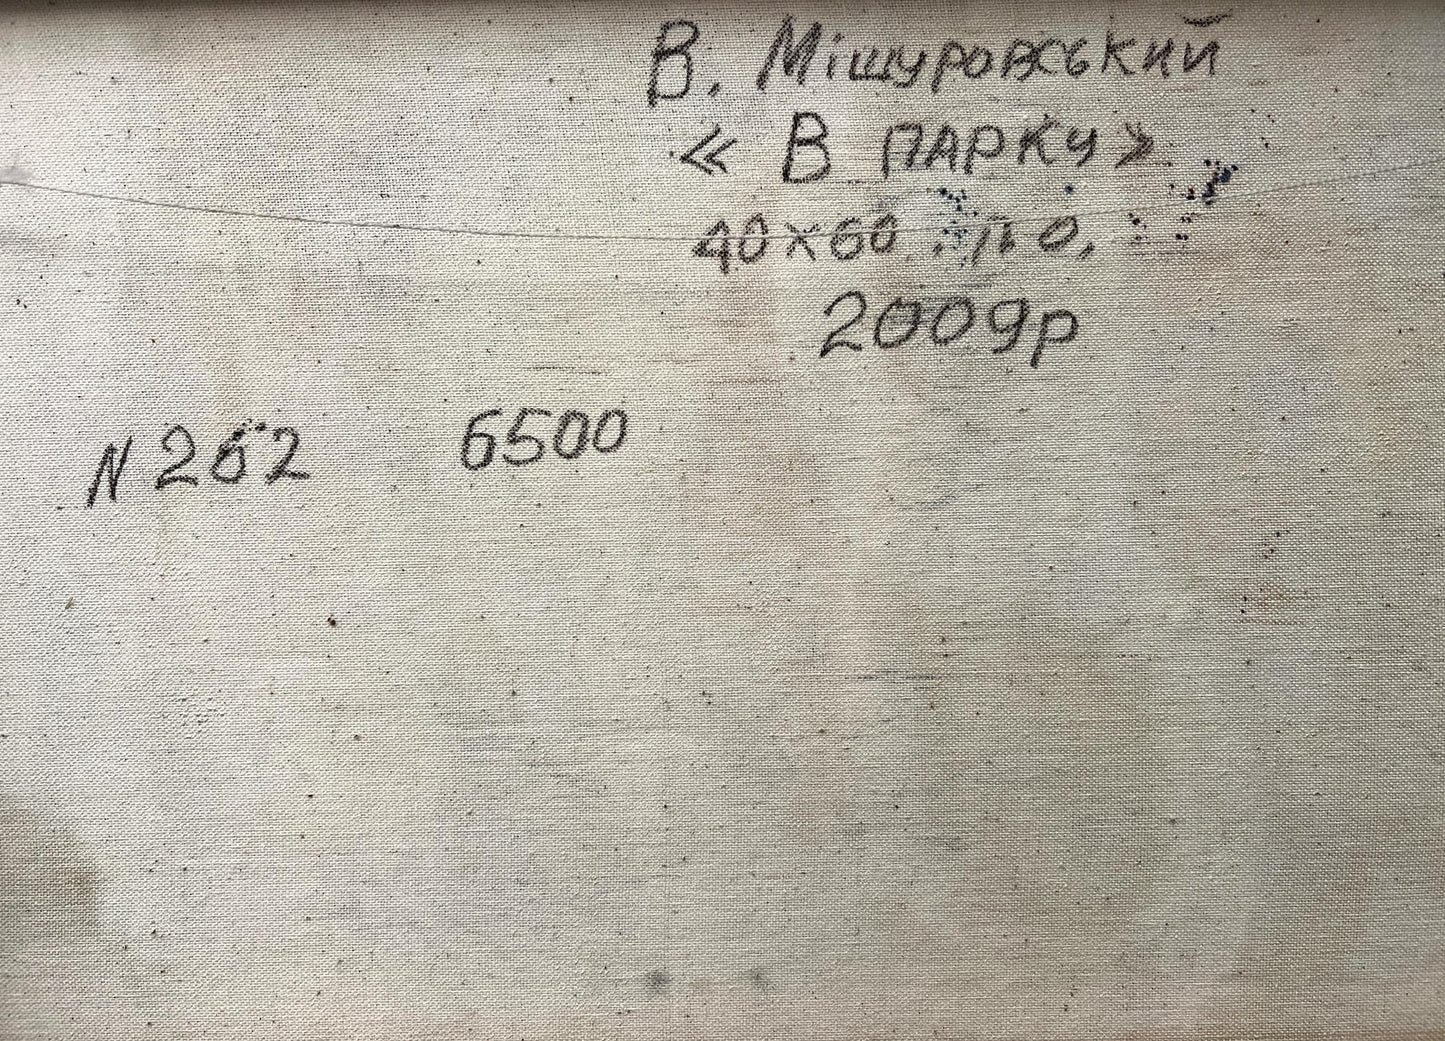 В. Мішуровський
« В ПАРКУ »
40х60. п.о.
2009р
N 262 6500